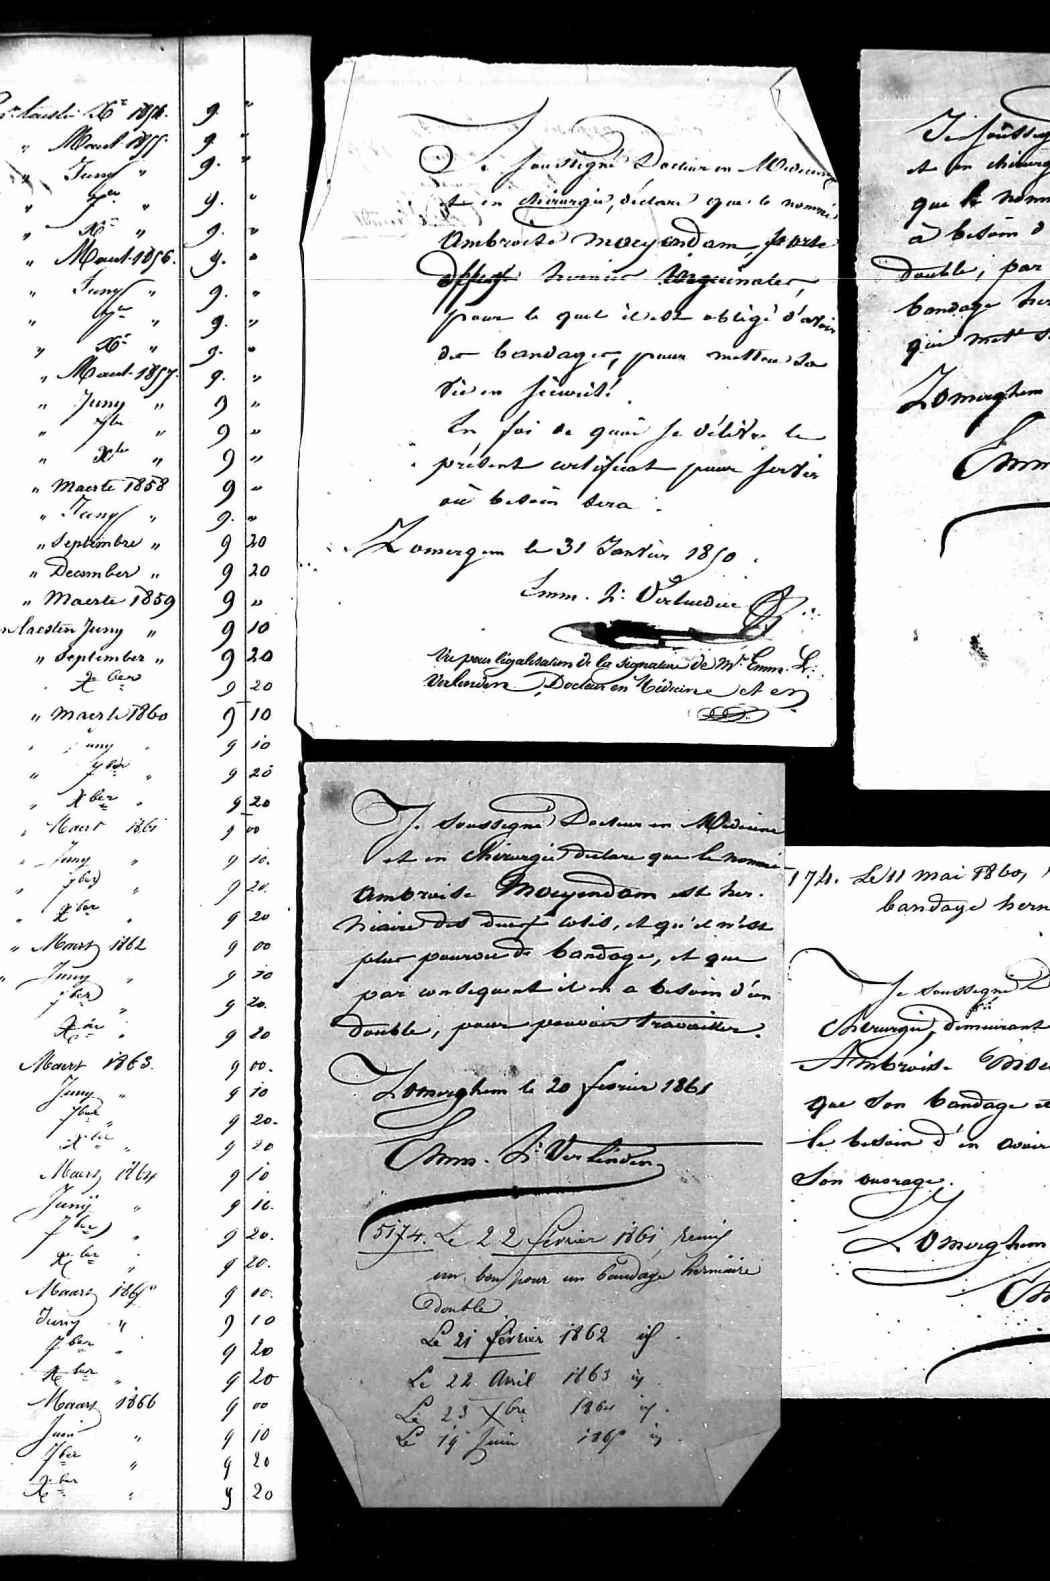 Xr 1854. 9. "
" Maart 1855. 9. "
" Juny " 9. "
" 7ber " 9. "
" Xr " 9. "
" Maart 1856. 9. "
" Juny " 9. "
" 7bre " 9. "
" Xr " 9. "
" Maart 1857. 9. "
" Juny " 9 "
" 7bre " 9 "
" Xbr " 9 "
" Maerte 1858 9 "
" Juny " 9. "
" Septembre " 9 20
" December " 9 20
" Maerte 1859 9 "
laesten Juny " 9 10
" September " 9 20
Xber 9 20
" Maerte 1860 9 10
" Juny " 9 10
" 7ber " 9 20
" Xber " 9 20
" Maert 1861 9 00
" Juny " 9 10.
" 7ber " 9 20.
" Xber " 9 20
" Maart 1862 9 00
" Juny " 9 10
7ber " 9 20.
Xber " 9 20
Maert 1863. 9 00.
Juny " 9 10
7ber " 9 20.
Xber " 9 20
Maart 1864 9 10
Junÿ " 9 10.
7ber " 9 20.
Xber " 9 20.
Maart 1865 9 00.
Juny " 9 10
7ber " 9 20
Xber " 9 20
Maart 1866 9 00
Juin " 9 10
7ber " 9 20
Xber " 9 20
Je soussigné Docteur en Médecine
et en chirurgie, déclare que le nommé
Ambroise Moeyendam, porte
hernies inguinales,
pour le quel il est obligé d'avoir
des bandages, pour mettre sa
vie en sécurité.
En foi de quoi je délivre le
présent certificat pour servir
où besoin sera.
Zomergem le 31 Janvier 1850.
Emm. L: Verlinden
Vu pour légalisation de la signature de Mr Emm. L.
Verlinden, Docteur en Médecine et en
Je soussigné Docteur en Médecine
et en chirurgie déclare que le nommé
Ambroise Moeyendam est her-
niaire des deux cotés, et qu'il n'est
plus pourvu de bandage, et que
par conséquent il en a besoin d'un
double, pour pouvoir travailler.
Zomerghem le 20 fevrier 1861
Emm. L: Verlinden
5174. Le 22 février 1861, remis
un bon pour un bandage herniaire
double
Le 21 février 1862 id.
Le 22 Avril 1863 id.
Le 23 Xbre 1864 id.
Le 19 Juin 1865 id.
Je soussig
et en chirurg
que le nomm
a besoin d
double, par
bandage her
qui met s
Zomerghem
Emm
174. Le 11 mai 1860,
bandage hern
Je soussigné D
chirurgie, demeurant
Ambroise Moe
que son bandage
le besoin d'en avoir
son ouvrage.
Zomerghem